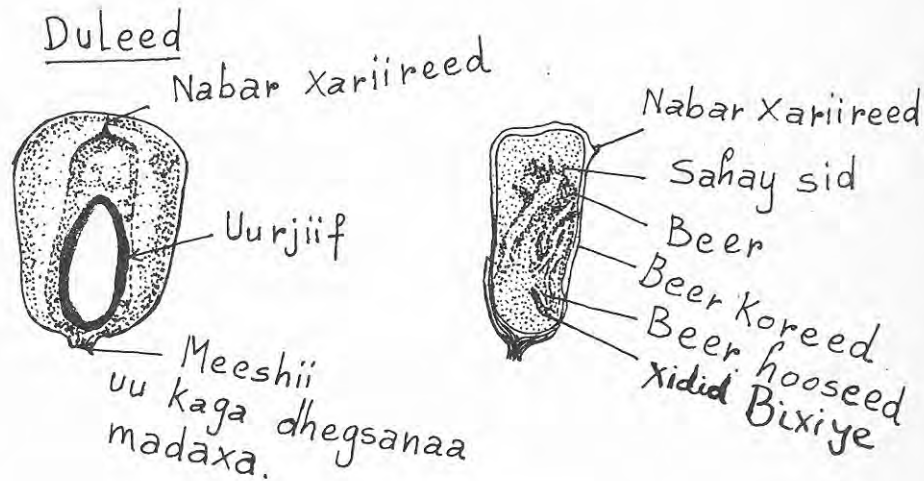 Duleed
Nabar Xariireed
Uurjiif
Meeshii
uu kaga dhegsanaa
madaxa.
Nabar Xariireed
Sahay sid
Beer
Beer Koreed
Beer hooseed
Xidid Bixiye